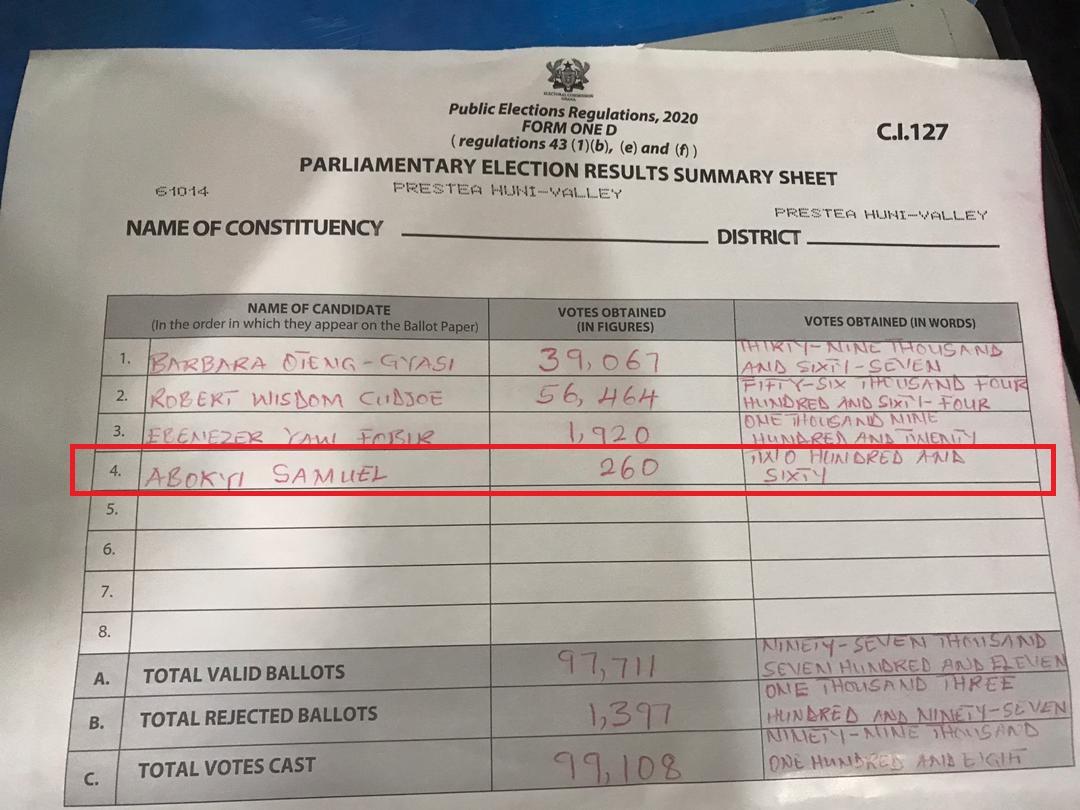 ELECTORAL COMMISSION
GHANA
Public Elections Regulations, 2020
FORM ONE D
( regulations 43 (1)(b), (e) and (f) )
C.I.127
PARLIAMENTARY ELECTION RESULTS SUMMARY SHEET
61014 PRESTEA HUNI-VALLEY
PRESTEA HUNI-VALLEY
NAME OF CONSTITUENCY DISTRICT
NAME OF CANDIDATE
(In the order in which they appear on the Ballot Paper)
VOTES OBTAINED
(IN FIGURES)
VOTES OBTAINED (IN WORDS)
1. BARBARA OTENG-GYASI 39,067 THIRTY-NINE THOUSAND
AND SIXTY-SEVEN
2. ROBERT WISDOM CUDJOE 56,464 FIFTY-SIX THOUSAND FOUR
HUNDRED AND SIXTY-FOUR
3. EBENEZER YAW FOBIR 1,920 ONE THOUSAND NINE
HUNDRED AND TWENTY
4. ABOKYI SAMUEL 260 TWO HUNDRED AND
SIXTY
5.
6.
7.
8.
A. TOTAL VALID BALLOTS 97,711 NINETY-SEVEN THOUSAND
SEVEN HUNDRED AND ELEVEN
B. TOTAL REJECTED BALLOTS 1,397 ONE THOUSAND THREE
HUNDRED AND NINETY-SEVEN
C. TOTAL VOTES CAST 99,108 NINETY-NINE THOUSAND
ONE HUNDRED AND EIGHT